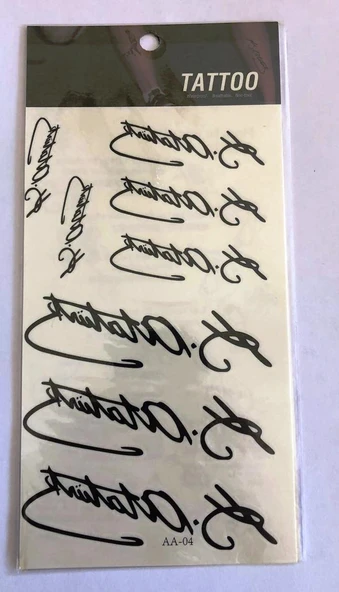 TATTOO
K. Atatürk
K. Atatürk
K. Atatürk
K. Atatürk
K. Atatürk
K. Atatürk
K. Atatürk
K. Atatürk
AA-04